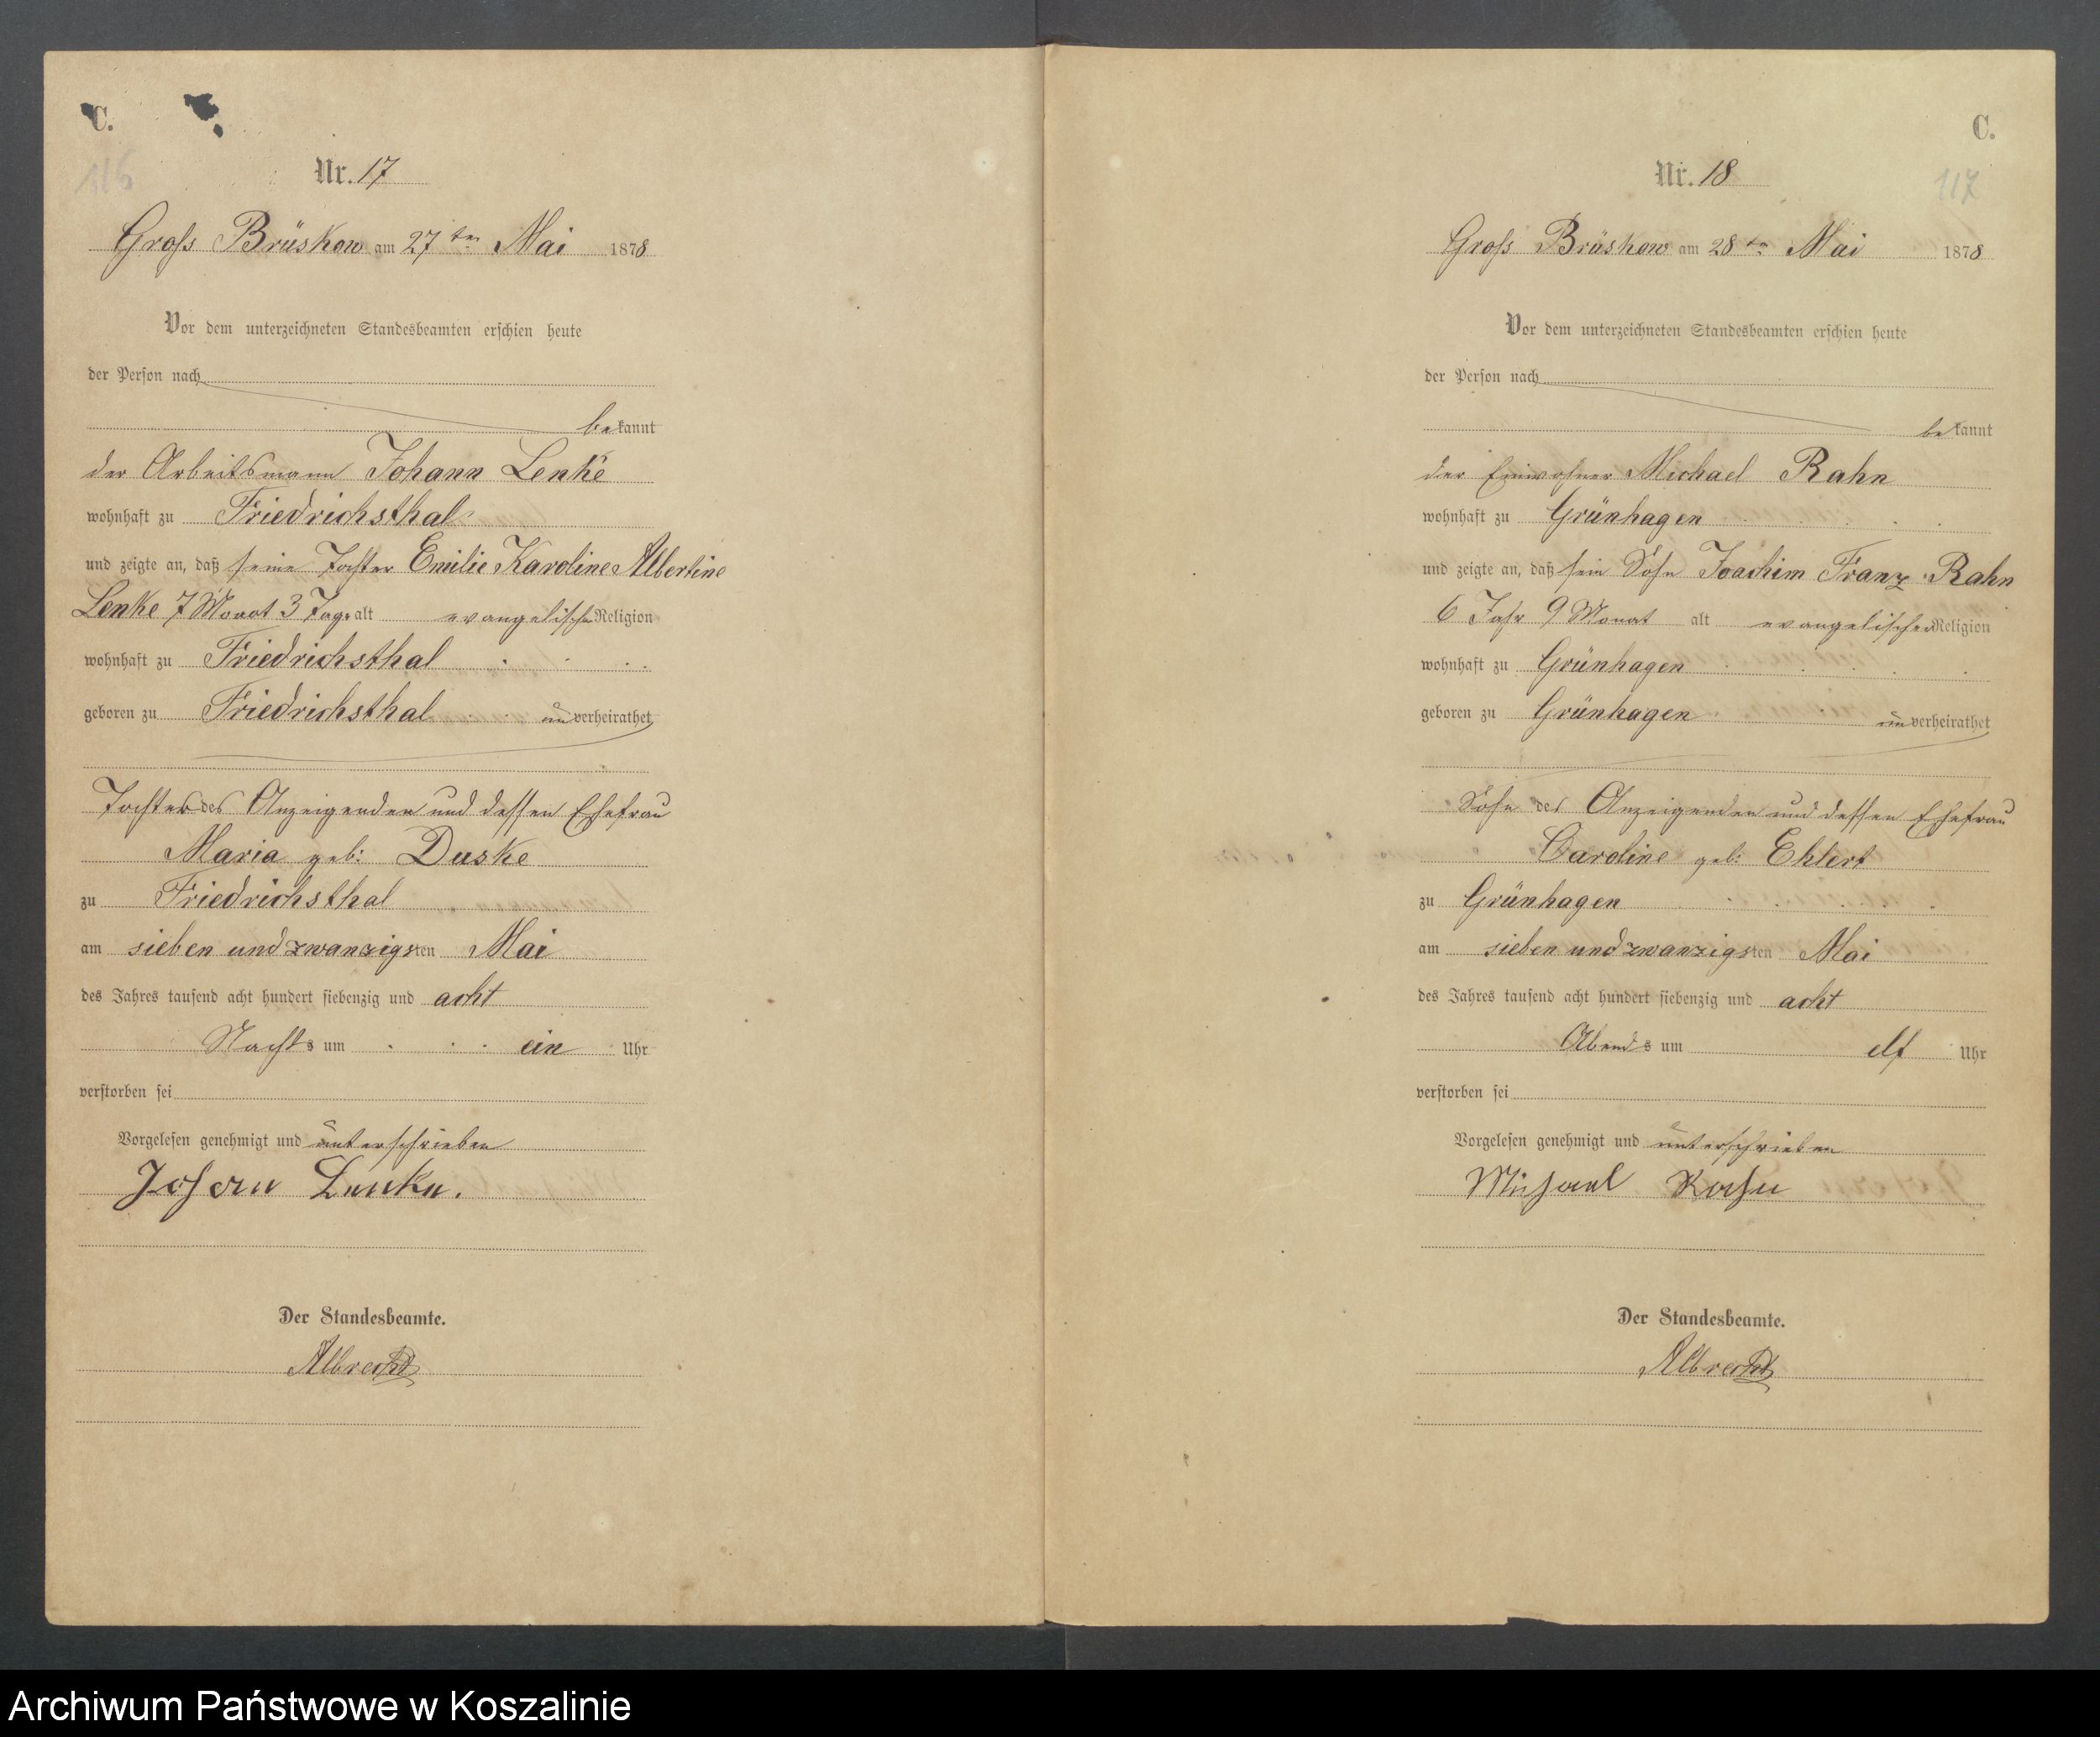 C.
116
Nr. 17
Gross Brüskow am 27ten Mai 1878
Vor dem unterzeichneten Standesbeamten erschien heute
der Person nach
bekannt
der Arbeitsmann Johann Lenke
wohnhaft zu Friedrichsthal
und zeigte an, daß seine Tochter Emilie Karoline Albertine
Lenke 7 Monat 3 Tage alt evangelischer Religion
wohnhaft zu Friedrichsthal
geboren zu Friedrichsthal unverheirathet
Tochter des Anzeigenden und dessen Ehefrau
Maria geb: Duske
zu Friedrichsthal
am sieben und zwanzigsten Mai
des Jahres tausend acht hundert siebenzig und acht
Nachts um ein Uhr
verstorben sei
Vorgelesen genehmigt und unterschrieben
Johann Lenke.
Der Standesbeamte.
Albrecht
C.
117
Nr. 18
Gross Brüskow am 28ten Mai 1878
Vor dem unterzeichneten Standesbeamten erschien heute
der Person nach
bekannt
der Einwohner Michael Rahn
wohnhaft zu Grünhagen
und zeigte an, daß sein Sohn Joachim Franz Rahn
6 Jahr 9 Monat alt evangelischer Religion
wohnhaft zu Grünhagen
geboren zu Grünhagen unverheirathet
Sohn des Anzeigenden und dessen Ehefrau
Caroline geb: Ehlert
zu Grünhagen
am sieben und zwanzigsten Mai
des Jahres tausend acht hundert siebenzig und acht
Abends um elf Uhr
verstorben sei
Vorgelesen genehmigt und unterschrieben
Michael Rahn
Der Standesbeamte.
Albrecht
Archiwum Państwowe w Koszalinie